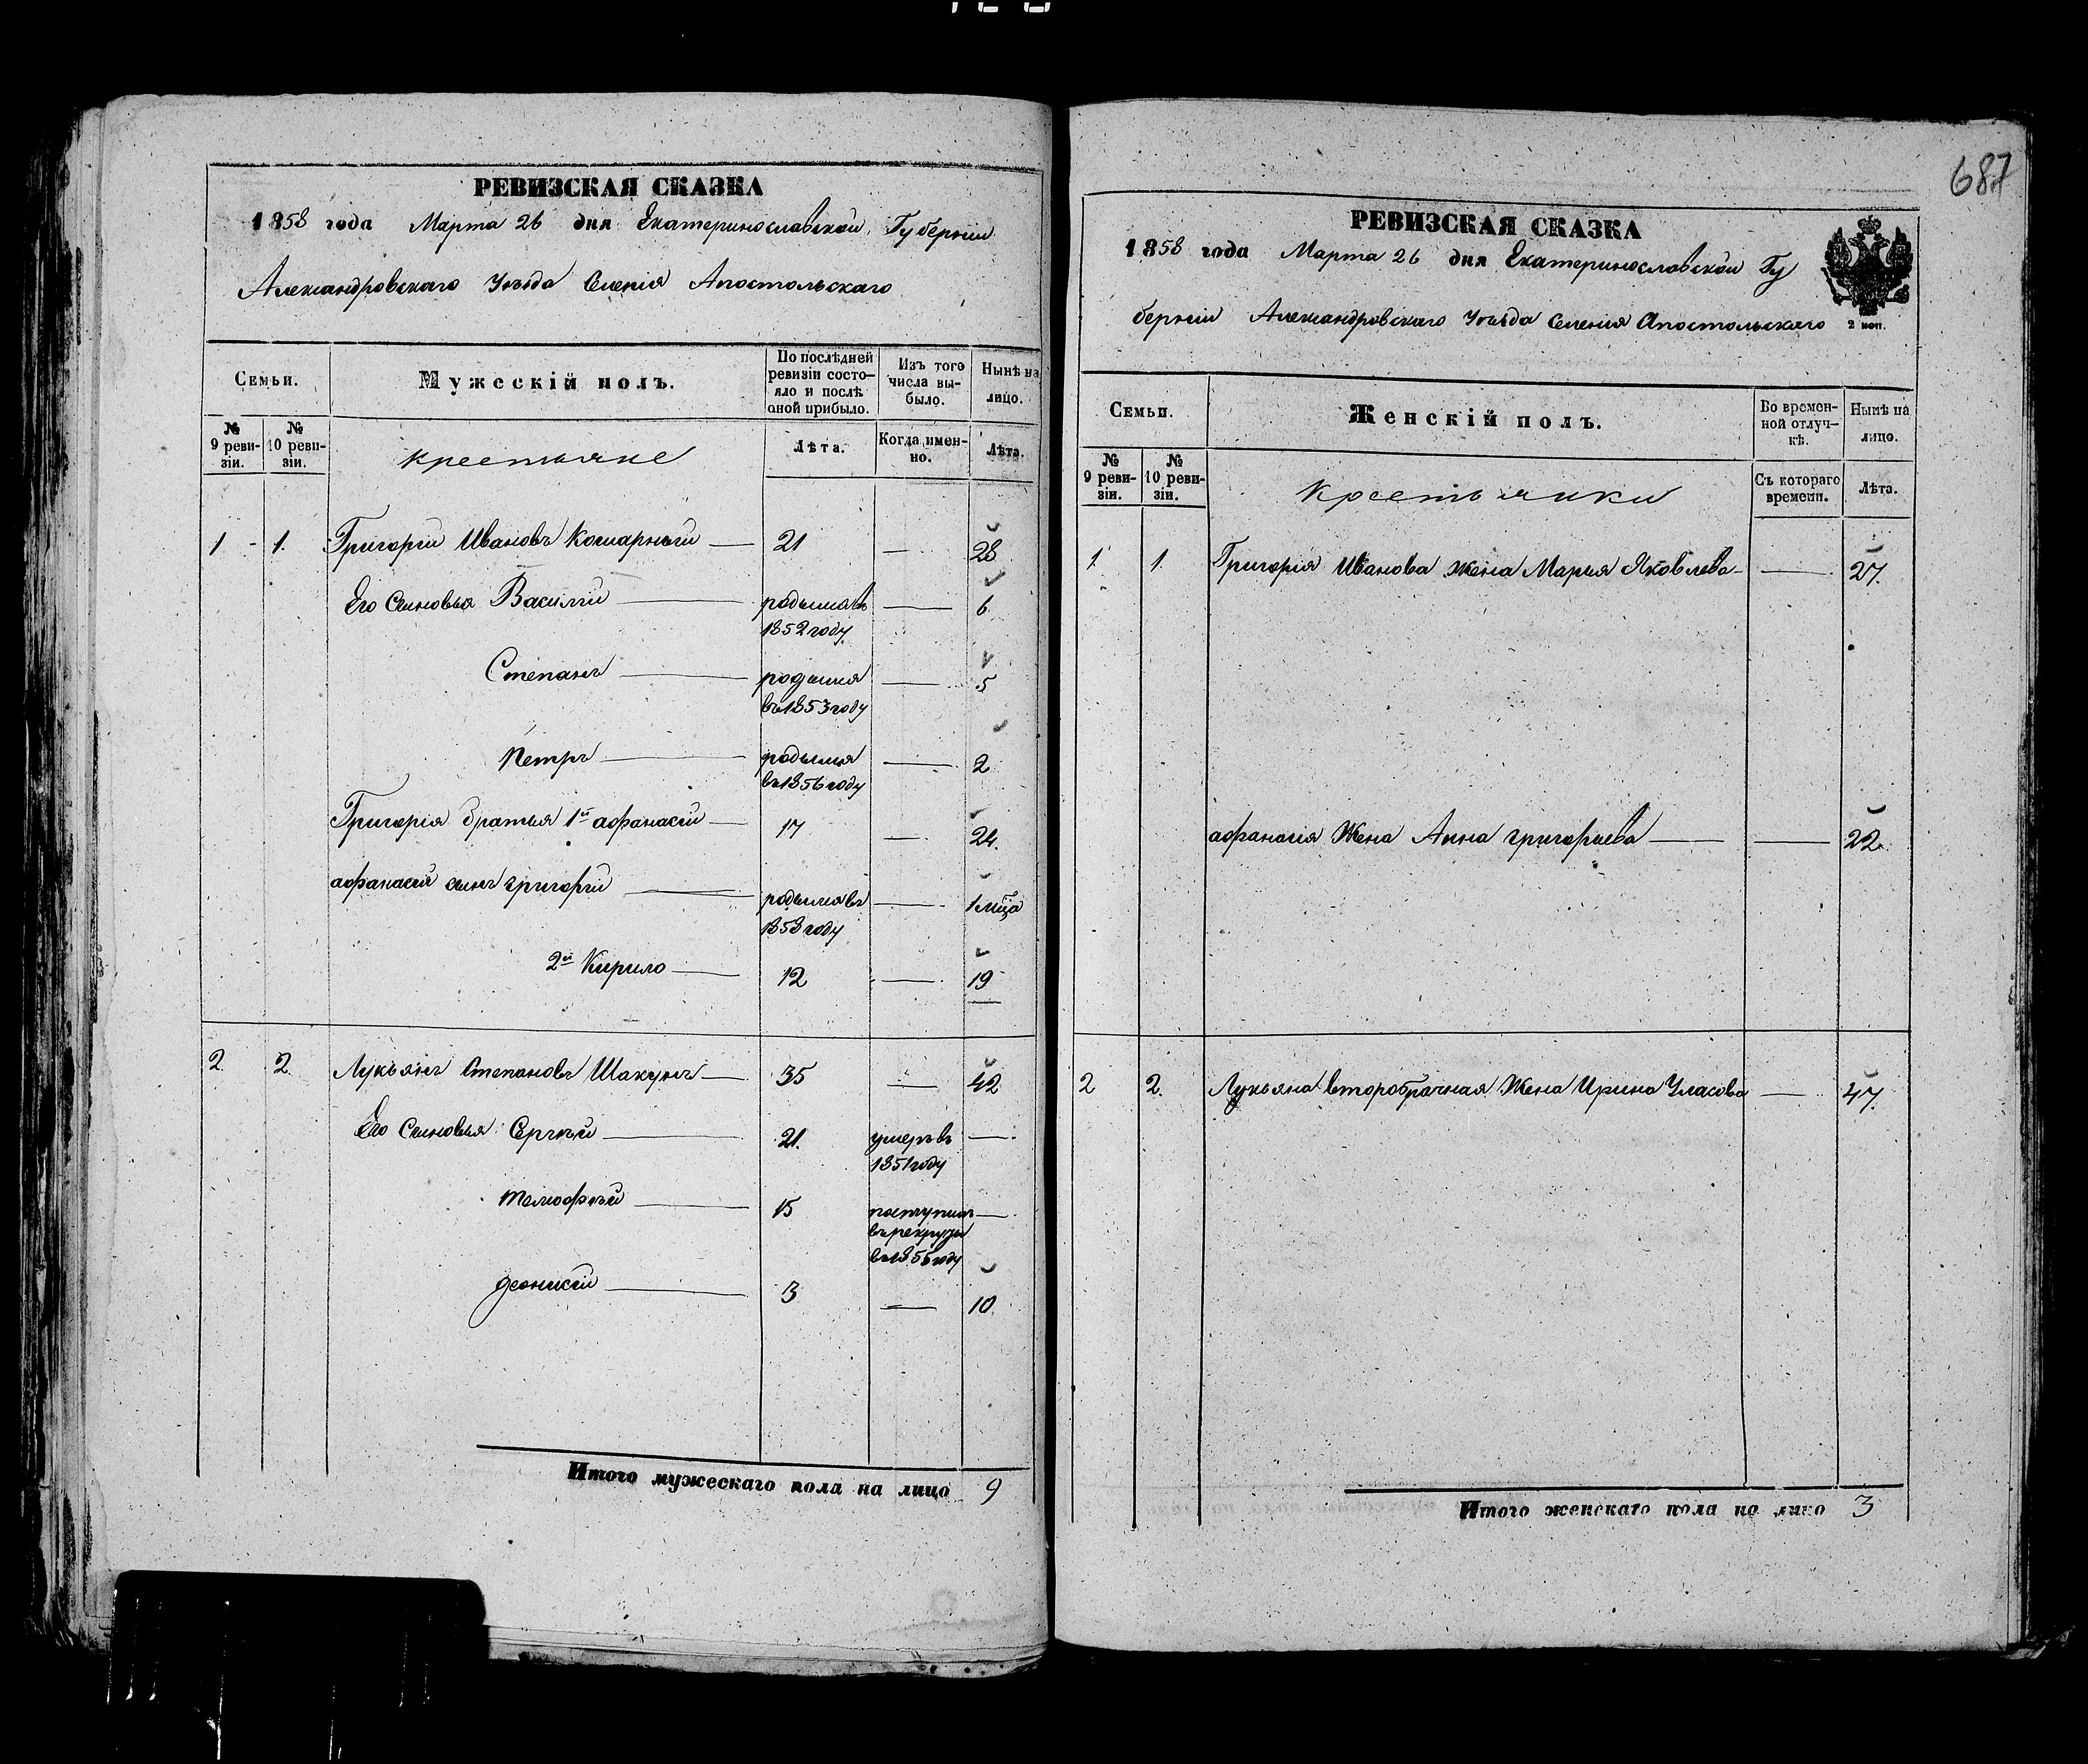 РЕВИЗСКАЯ СКАЗКА
1858 года Марта 26 дня Екатеринославской Губерніи
Александровскаго Уѣзда Селенія Апостольскаго
Семьи.
Мужескій полъ.
По послѣдней ревизіи состо-яло и послѣ оной прибыло.
Изъ того числа вы-было.
Нынѣ на лицо.
№ 9 реви-зіи.
№ 10 реви-зіи.
крестьяне
Лѣта.
Когда имен-но.
Лѣта.
1 1. Григорій Ивановъ Кошарный 21 — 28
Его Сыновья Василій родылся въ — 6
1852 году
Степанъ родылся — 5
въ 1853 году
Петръ родылся — 2
въ 1856 году
Григорія братья 1й афанасій 17 — 24.
афанасія сынъ григорій родылся въ — 1 мца
1858 году
2й Кирило 12 — 19
2. 2. Лукьянъ Степановъ Шакунъ 35 — 42
Его Сыновья Сергѣй 21. умеръ въ —
1851 году
тимофѣй 15 поступилъ —
въ рекруты
въ 1855 году
деонисій 3 — 10.
Итого мужескаго пола на лицо 9
687
РЕВИЗСКАЯ СКАЗКА
1858 года Марта 26 дня Екатеринославской Гу
берніи Александровскаго Уѣзда Селенія Апостольскаго
2 коп.
Семьи.
Женскій полъ.
Во времен-ной отлуч-кѣ.
Нынѣ на лицо.
№ 9 реви-зіи.
№ 10 реви-зіи.
Крестьянки
Съ котораго времени.
Лѣта.
1. 1. Григорія Иванова Жена Марья Яковлева — 27.
афанасія Жена Анна григорьева — 22.
2 2. Лукьяна второбрачная Жена Ирина Уласова — 47.
Итого женскаго пола на лицо 3